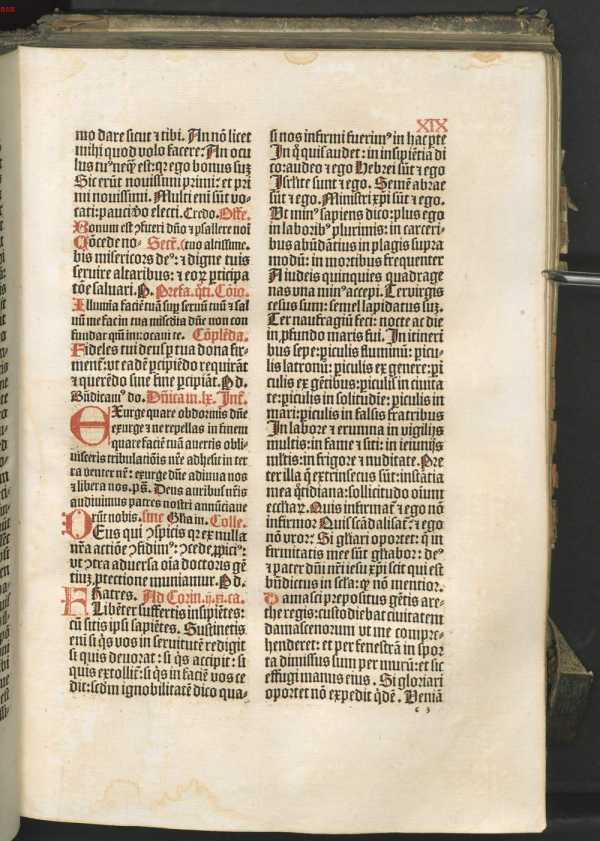 XIX
mo dare sicut ⁊ tibi. An nō licet
mihi quod volo facere: An ocu
lus tuꝰ neqͣ est: qr ego bonus suꝫ
Sic erūt nouissimi primi: et pri
mi nouissimi. Multi eni sūt vo-
cati: pauci v̄o electi. Credo. Offe.
Bonum est ꝯfiteri dn̄o ⁊ psallere noī
Cōcede no- Secr̄. (tuo altissime.
bis misericors deꝰ: ⁊ digne tuis
seruire altaribus: ⁊ eoꝝ ꝑticipa
tōe saluari. P. Prefa. q̄ti. Cōio.
Illumīa faciē tuā suꝑ seruū tuū ⁊ sal
uū me fac in tua mīsc̄dia dn̄e non con
fundar qm̄ inuocaui te. Cōplēda.
Fideles tui deus ꝑ tua dona fir-
mentʳ: vt eadē ꝑcipiēdo requirāt
⁊ querēdo sine fine ꝑcipiāt. P d.
Bn̄dicamꝰ do. Dn̄ica in. lx. Int̄.
EXurge quare obdormis dn̄e
exurge ⁊ ne repellas in finem
quare faciē tuā auertis obli-
uisceris tribulatiōis nr̄e adhesit in ter
ra venter nr̄: exurge dn̄e adiuua nos
⁊ libera nos. ps̄. Deus auribus nr̄is
audiuimus patres nostri annūciaue
rūt nobis. sine Gl̄ia in. Colle.
DEus qui ꝯspicis qr ex nulla
nr̄a actiōe ꝯfidimꝰ: ꝯcede ꝓpiciꝰ:
vt ꝯtra aduersa oīa doctoris gē
tiuꝫ ꝓtectione muniamur. P d.
FRatres. Ad Corin. ij. xj. ca.
Libēter suffertis insipiētes:
cū sitis ipsi sapiētes. Sustinetis
eni si q̄s vos in seruitutē redigit
si quis deuorat: si q̄s accipit: si
quis extollitʳ: si q̄s in faciē vos ce
dit: scd̄m ignobilitatē dico qua-
si nos infirmi fuerimꝰ in hac pte
In q̄ quis audet: in insipiētia di
co: audeo ⁊ ego Hebrei sūt ⁊ ego
Isrl̄ite sunt ⁊ ego. Semē abrae
sūt ⁊ ego. Ministri xp̄i sūt ⁊ ego.
Vt minꝰ sapiens dico: plus ego
in laboribꝰ plurimis: in carceri
bus abūdātius in plagis supra
modū: in mortibus frequenter
A iudeis quinquies quadrage
nas vna minꝰ accepi. Ter virgis
cesus sum: semel lapidatus suꝫ.
Ter naufragiū feci: nocte ac die
in ꝓfundo maris fui. In itineri
bus sepe: ꝑiculis fluminū: ꝑicu-
lis latronū: ꝑiculis ex genere: ꝑi
culis ex gētibus: ꝑiculis in ciuita
te: ꝑiculis in solitudie: ꝑiculis in
mari: ꝑiculis in falsis fratribus
In labore ⁊ erumna in vigilijs
multis: in fame ⁊ siti: in ieiunijs
ml̄tis: in frigore ⁊ nuditate. Pre
ter illa q̄ extrinsecus sūt: instātia
mea q̄tidiana: sollicitudo oīum
eccl̄iaꝝ. Quis infirmatʳ ⁊ ego nō
infirmor Quis scādalisatʳ: ⁊ ego
nō vror: Si gl̄iari oportet: q̄ in
firmitatis mee sūt gl̄iabor: deꝰ
⁊ pater dn̄i nr̄i iesu xp̄i scit qui est
bn̄dictus in scl̄a: ꝙ nō mentior.
Damasci prepositus gētis are-
the regis: custodiebat ciuitatem
damascenorum vt me compre-
henderet: et per fenestrā in spor
ta dimissus sum per murū: et sic
effugi manus eius. Si gloriari
oportet nō expedit qͥdē. Veniā
c 3